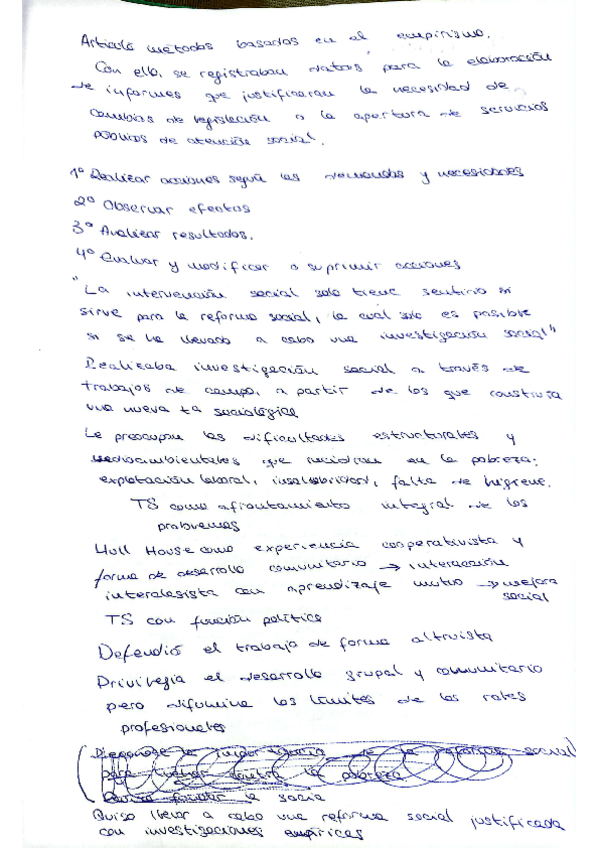 Articuló métodos basados en el empirismo.
Con ello, se registraban datos para la elaboración
de informes que justificaran la necesidad de
cambios de legislación o la apertura de servicios
públicos de atención social.
1º Realizar acciones según las demandas y necesidades
2º Observar efectos
3º Analizar resultados.
4º Evaluar y modificar o suprimir acciones
"La intervención social solo tiene sentido si
sirve para la reforma social, la cual solo es posible
si se ha llevado a cabo una investigación social"
Realizaba investigación social a través de
trabajos de campo, a partir de los que construía
una nueva ta sociológica
Le preocupan las dificultades estructurales y
medioambientales que incidían en la pobreza:
explotación laboral, insalubridad, falta de higiene.
TS como afrontamiento integral de los
problemas
Hull House como experiencia cooperativista y
forma de desarrollo comunitario → interacción
interclasista con aprendizaje mutuo → mejora
social
TS con función política
Defendió el trabajo de forma altruista
Privilegia el desarrollo grupal y comunitario
pero difumina los límites de los roles
profesionales
la importancia de la reforma social
para luchar contra la pobreza
Quiso la socia
Quiso llevar a cabo una reforma social justificada
con investigaciones empíricas